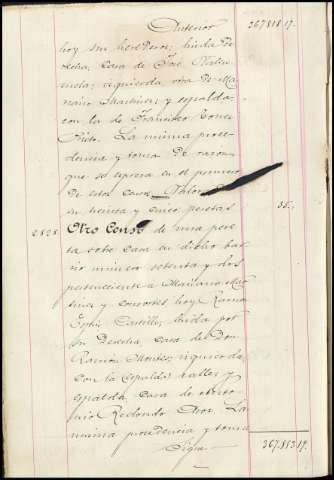 Anterior 367.818.19.
hoy sus herederos; linda De-
recha, casa de José Valen-
zuela; izquierda otra de Ma-
riano Martinez y espalda
con la de Francisco Torres
Nieto. La misma proce-
dencia y toma de razon
que se espresa en el primero
de estos censos. Valor
en treinta y cinco pesetas 35.
2828 Otro Censo de una pese-
ta sobre casa en dicho bar-
rio numero setenta y dos
perteneciente a Mariano Mar-
tinez y consortes hoy Ramon
Castillo, linda por
su Derecha, casa de Don
Ramon Montes; izquierda
con la espalda calle; y
espalda, casa de
Redondo La
misma procedencia y toma
Sigue 367.853.19.